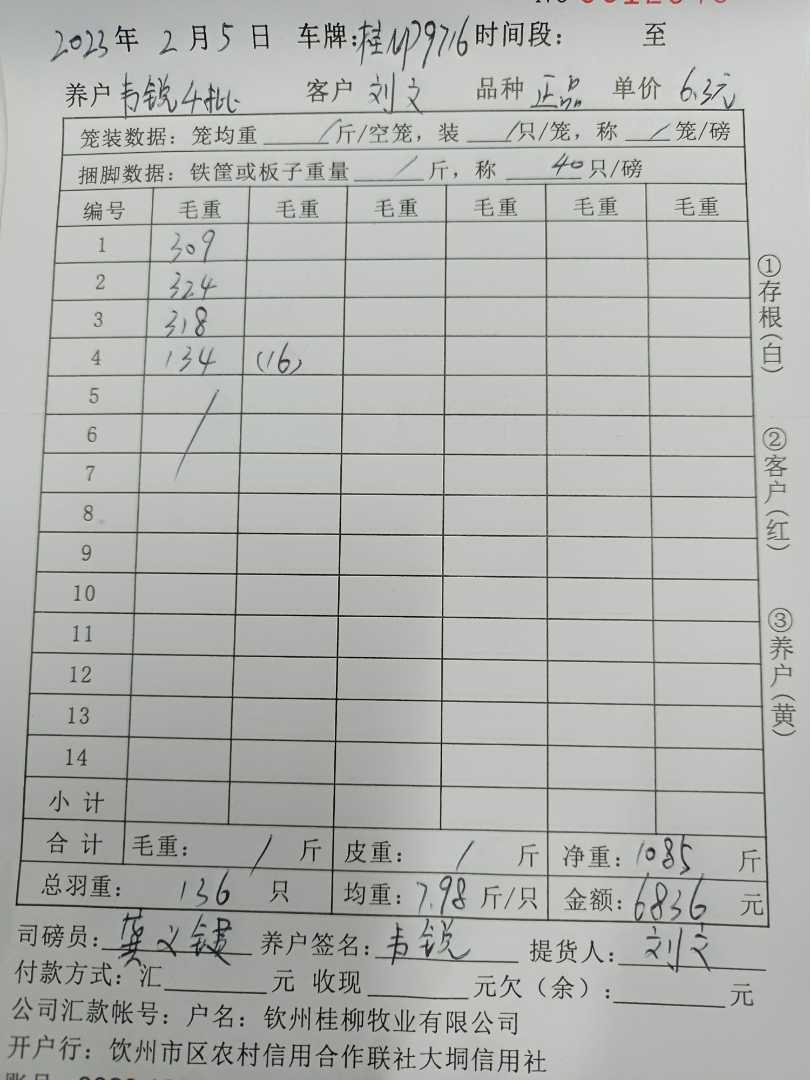 2023年 2月5日 车牌:桂NP9716时间段: 至
养户 韦锐4批 客户 刘文 品种 正品 单价 6.3元
笼装数据:笼均重 / 斤/空笼,装 / 只/笼,称 / 笼/磅
捆脚数据:铁筐或板子重量 / 斤,称 40 只/磅
编号 毛重 毛重 毛重 毛重 毛重 毛重
1 309
2 324
3 318
4 134 (16)
5
6 /
7
8
9
10
11
12
13
14
小计
合计 毛重: / 斤 皮重: / 斤 净重:1085 斤
总羽重: 136 只 均重:7.98 斤/只 金额:6836 元
司磅员: 龚义键 养户签名: 韦锐 提货人: 刘文
付款方式:汇 元 收现 元欠(余): 元
公司汇款帐号:户名:钦州桂柳牧业有限公司
开户行:饮州市区农村信用合作联社大垌信用社
①存根(白)
②客户(红)
③养户(黄)